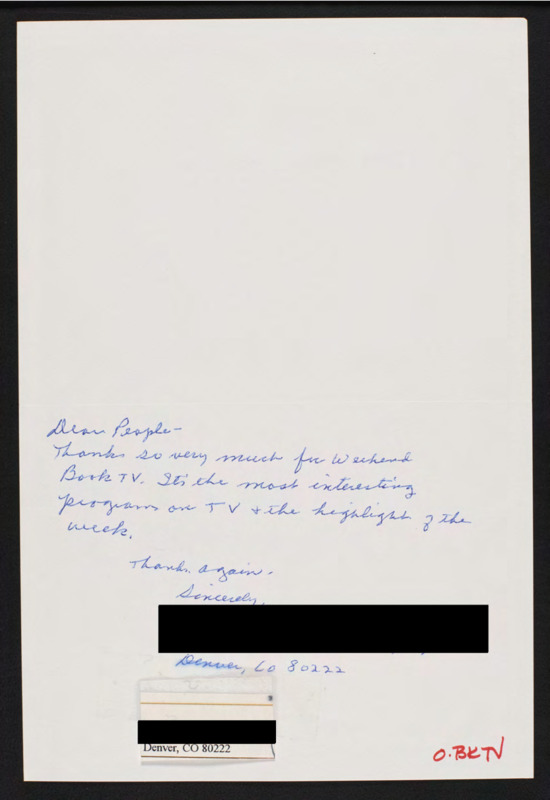 Dear People-
Thanks so very much for Weekend
Book TV. It's the most interesting
program on TV & the highlight of the
week.
Thanks again.
Sincerely,
Denver, Co 80222
Denver, CO 80222
O.BKTV